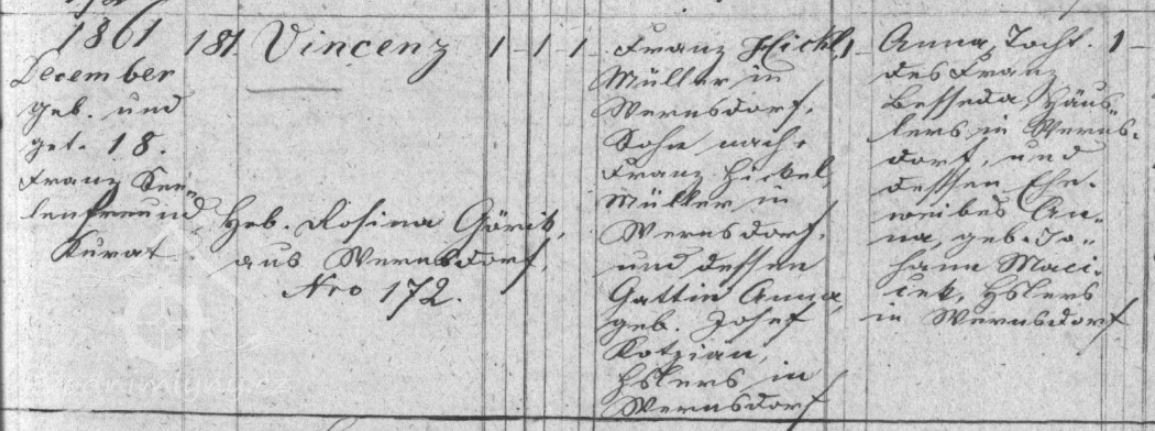 1861
December
geb. und
get. 18.
Franz See-
lenfreund
Kurat
181
Vincenz
Heb. Rosina Görik,
aus Wernsdorf,
Nro 172.
1 - 1 - 1 -
Franz Hickl, 1 -
Müller in
Wernsdorf.
Sohn nach
Franz Hickel,
Müller in
Wernsdorf,
und dessen
Gattin Anna,
geb. Josef
Kotzian,
Hslers in
Wernsdorf
Anna, Tocht. 1 -
des Franz
Besseda, Häus-
lers in Werns-
dorf, und
dessen Ehe-
weibes An-
na, geb. Jo-
hann Maci-
cek, Hslers
in Wernsdorf